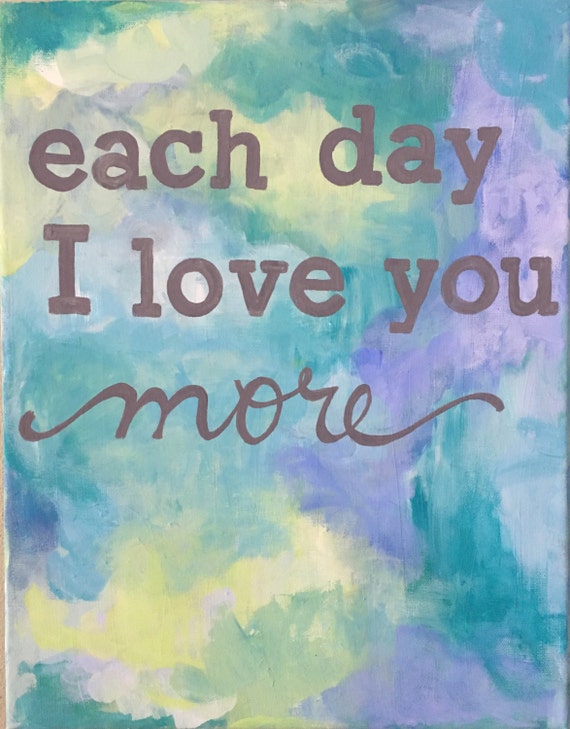 each day
I love you
more